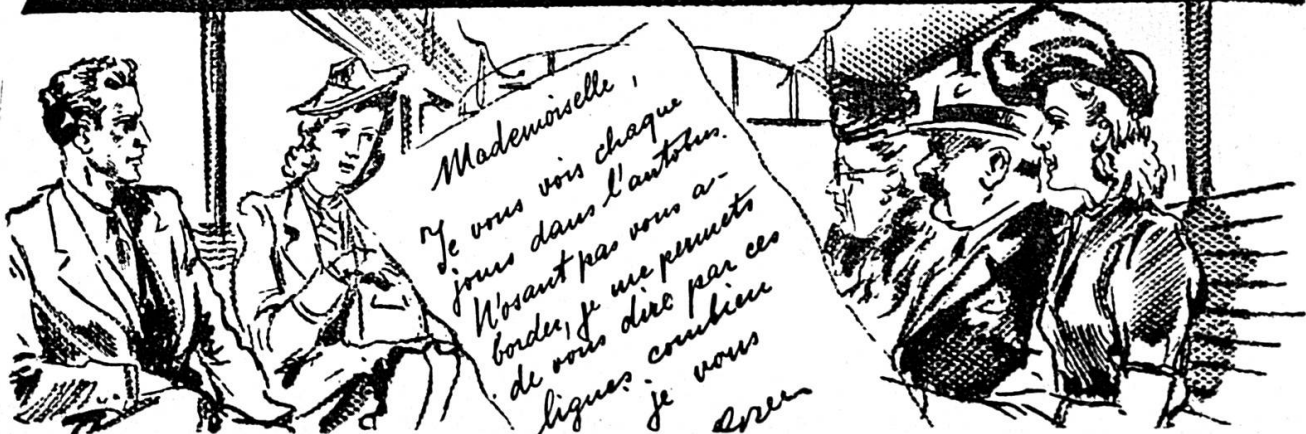 Mademoiselle,
Je vous vois chaque
jours dans l'autobus.
N'osant pas vous a-
border, je me permets
de vous dire par ces
lignes combien
je vous